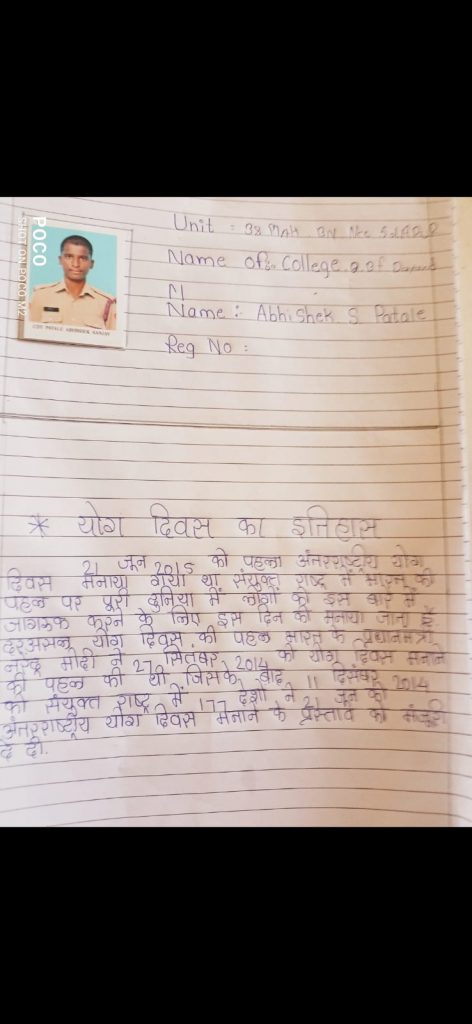 POCO
SHOT ON POCO M2
CDT PATALE ABHISHEK SANJAY
Unit : 38 Mah Bn Ncc
Name of College
M
Name :- Abhishek S Patale
Reg No :
* योग दिवस का इतिहास
21 जून 2015 को पहला अंतरराष्ट्रीय योग
दिवस मनाया गया था संयुक्त राष्ट्र में भारत की
पहल पर पूरी दुनिया में लोगों को इस बारे में
जागरूक करने के लिए इस दिन को मनाया जाता है.
दरअसल योग दिवस की पहल भारत के प्रधानमंत्री
नरेंद्र मोदी ने 27 सितंबर 2014 को योग दिवस मनाने
की पहल की थी जिसके बाद 11 दिसंबर 2014
को संयुक्त राष्ट्र में 177 देशों ने 21 जून को
अंतरराष्ट्रीय योग दिवस मनाने के प्रस्ताव को मंजूरी
दे दी.